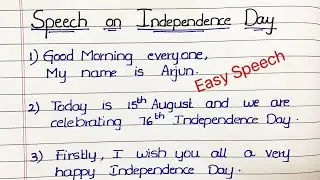 Speech on Independence Day
1) Good Morning everyone,
My name is Arjun.
Easy Speech
2) Today is 15th August and we are
celebrating 76th Independence Day.
3) Firstly, I wish you all a very
happy Independence Day.